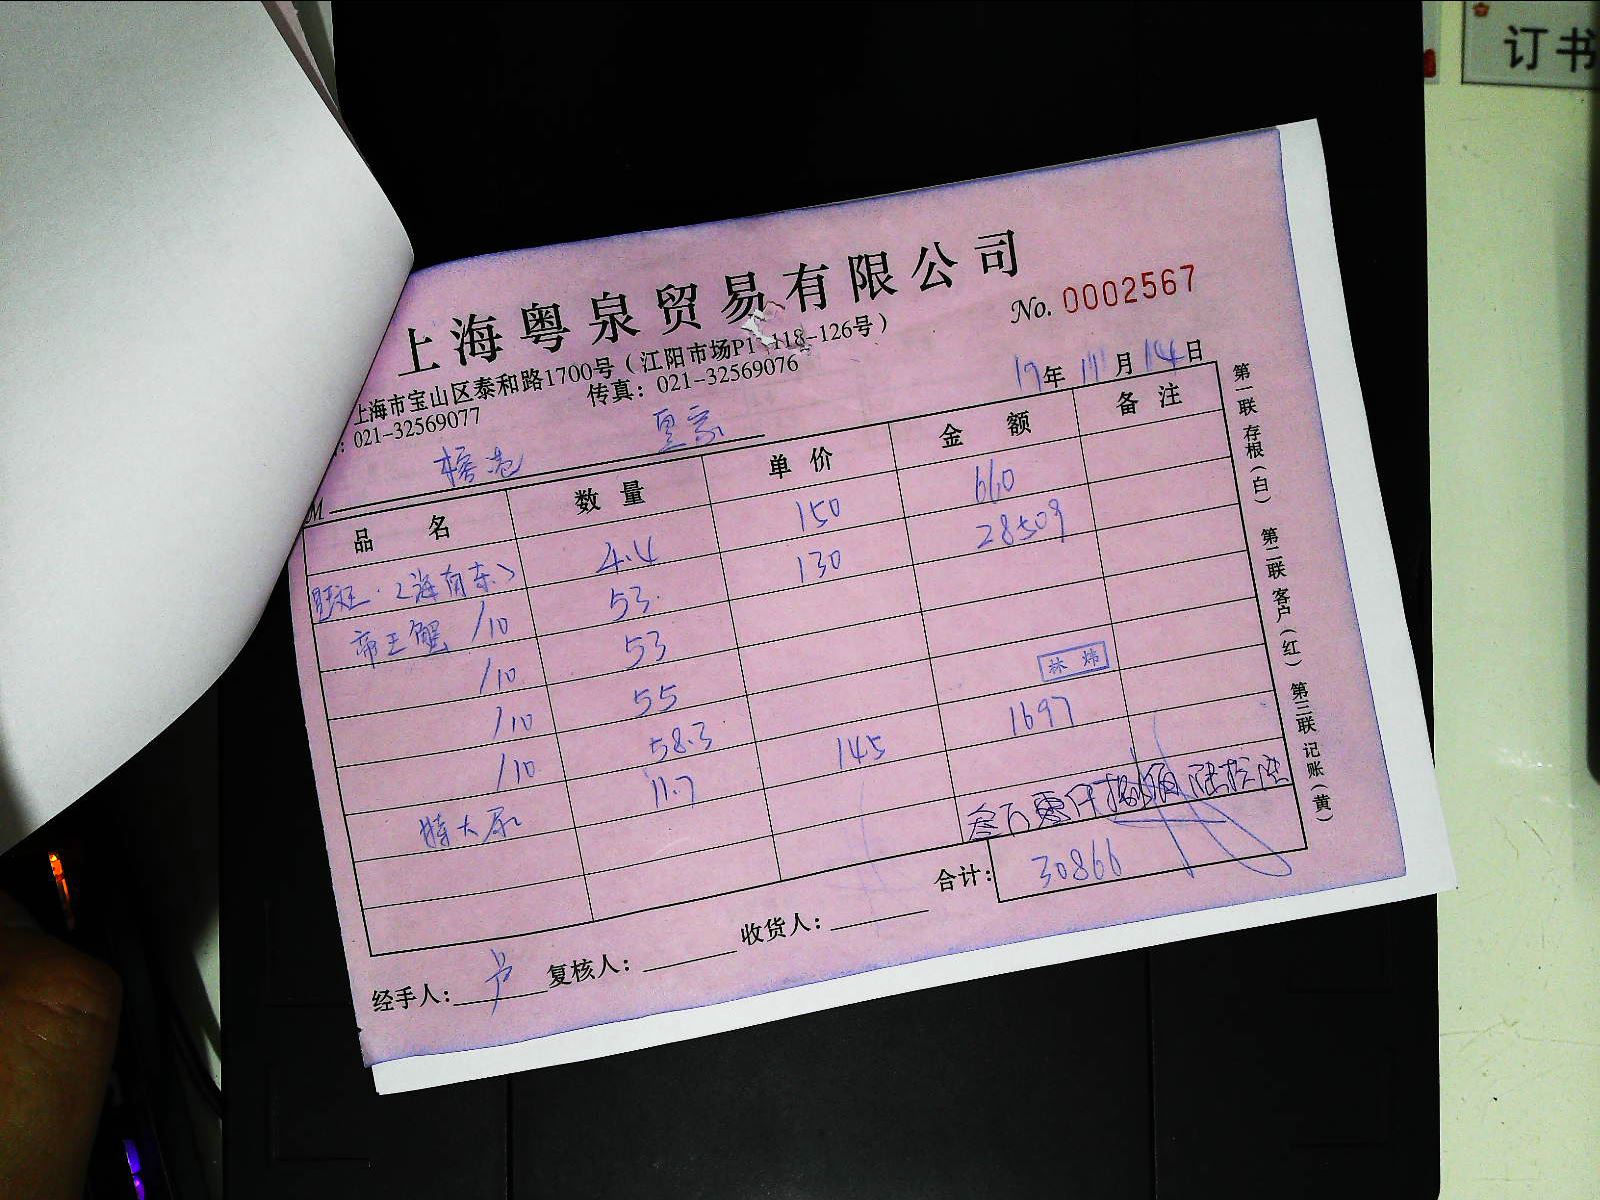 订书
上海粤泉贸易有限公司
No. 0002567
上海市宝山区泰和路1700号（江阳市场P1 118-126号）
: 021-32569077 传真：021-32569076
19年 11月 14日
M 皇家
品名 数量 单价 金额 备注
4.4 150 660
帝王蟹 /10 53 130 28509
/10 53
/10 55
/10 58.3
特大 11.7 145 1697
林炜
合计： 30866
经手人： 复核人： 收货人：
第一联 存根（白） 第二联 客户（红） 第三联 记账（黄）